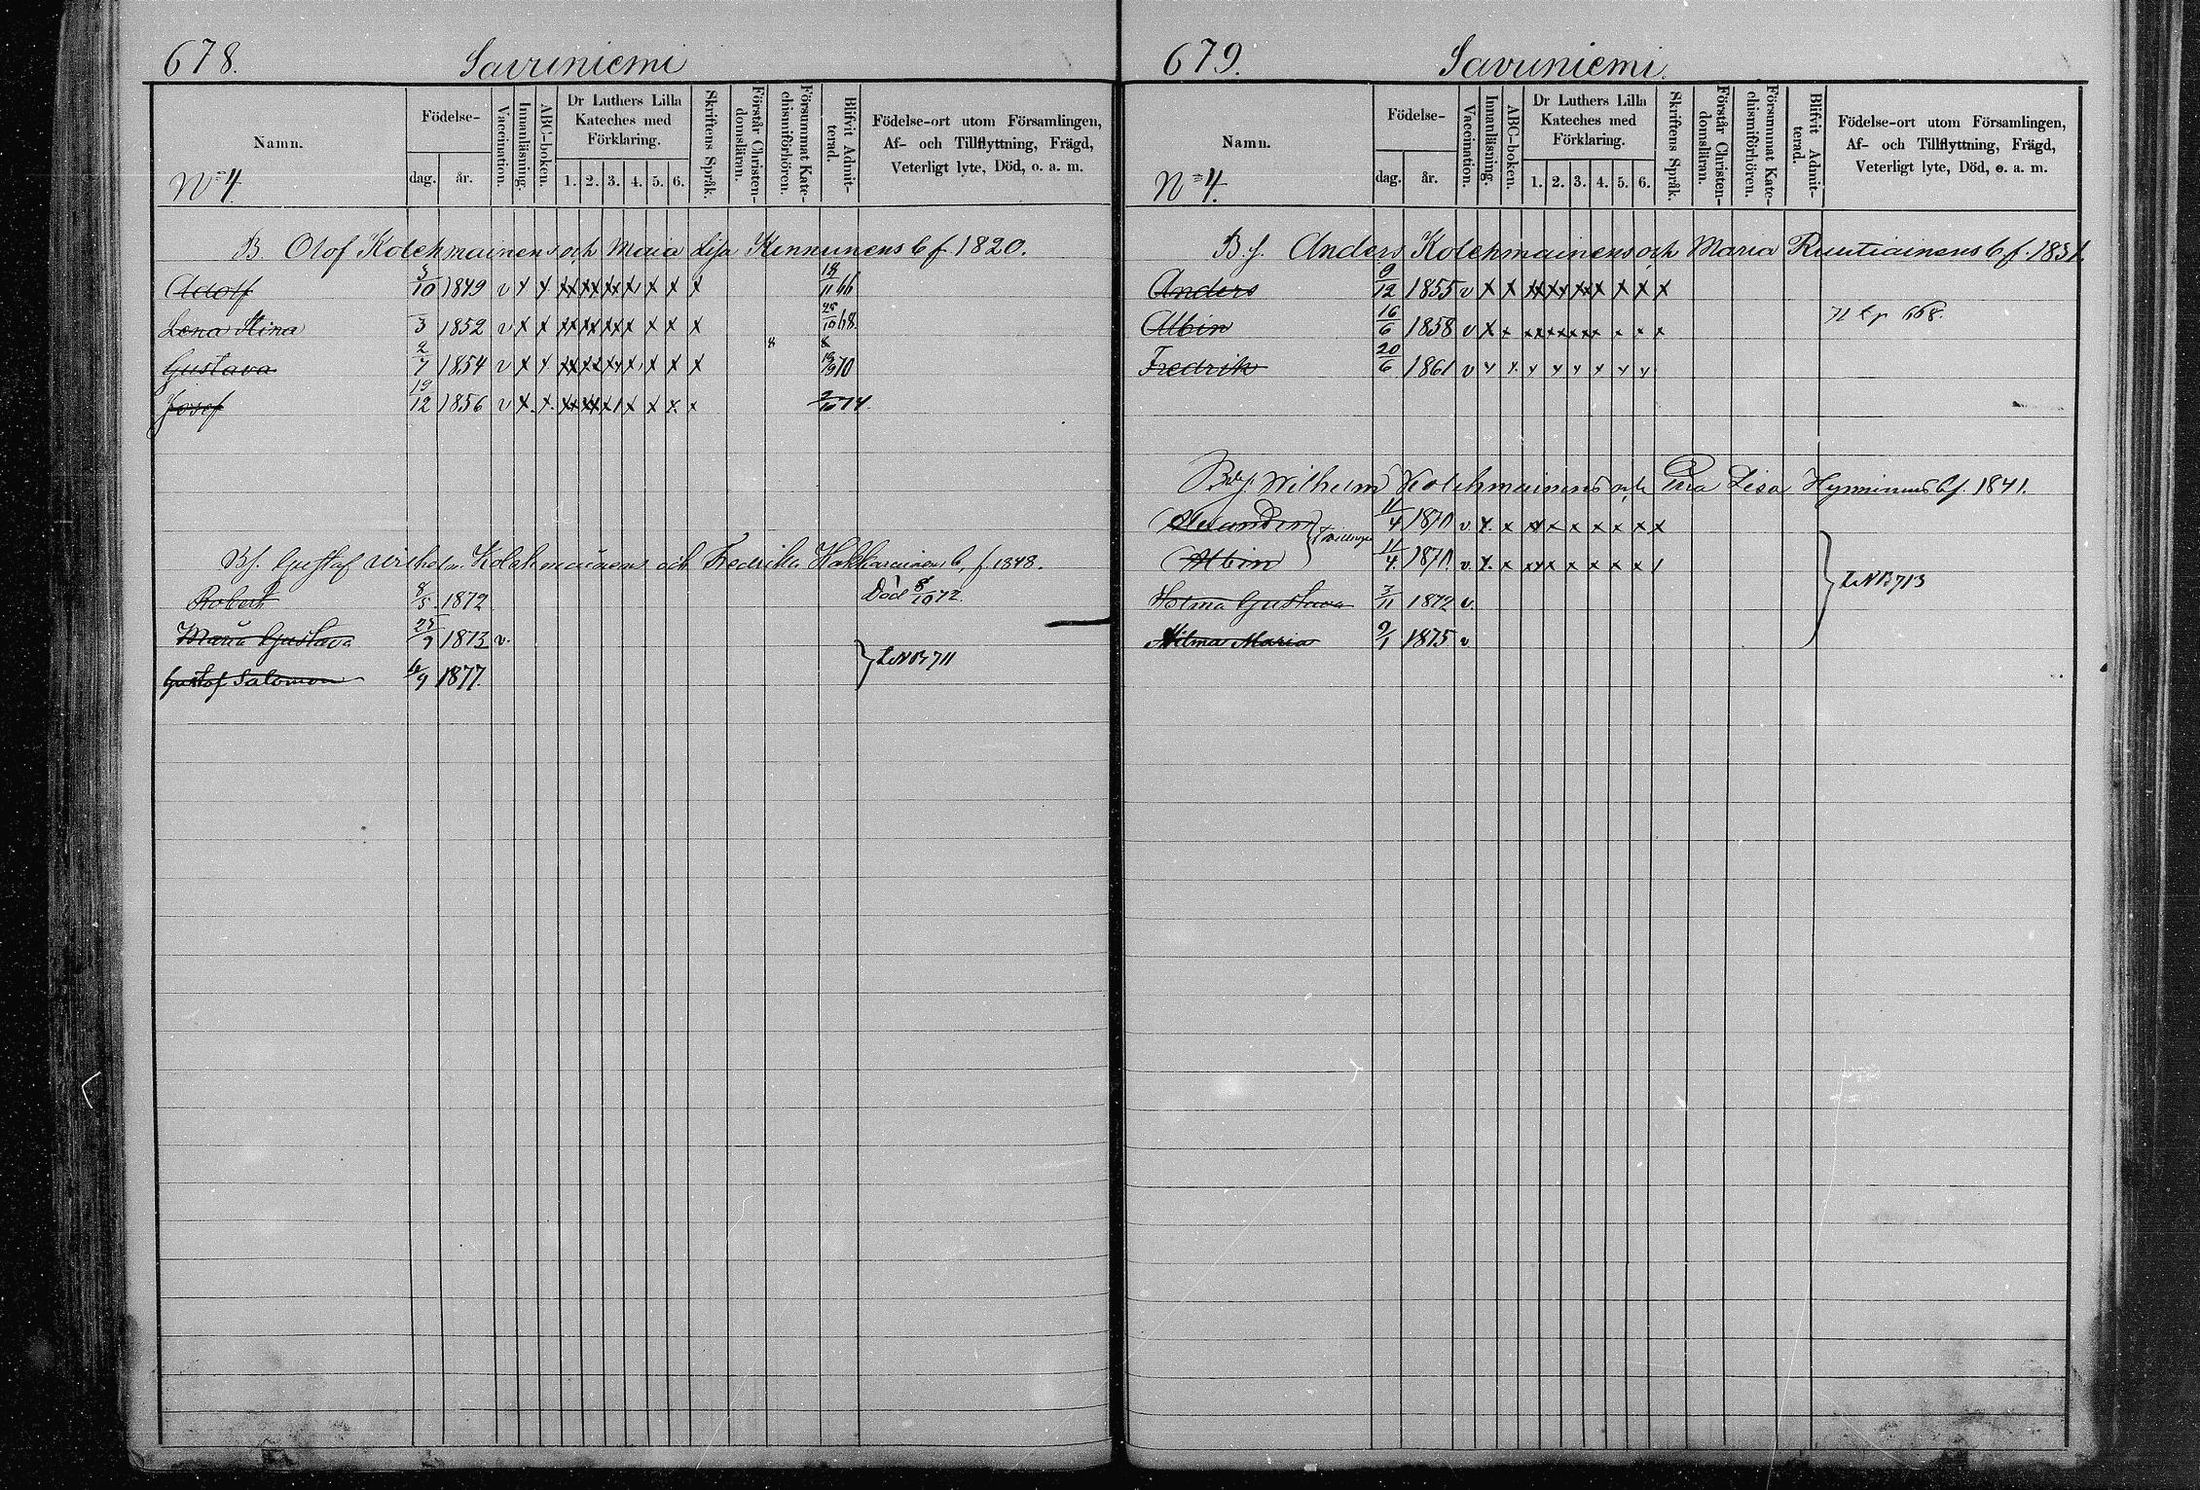 678. Savuniemi
Namn. Födelse- dag. år. Vaccination. Innanläsning. ABC-boken. Dr Luthers Lilla Kateches med Förklaring. 1. 2. 3. 4. 5. 6. Skriftens Språk. Förstår Christendomsläran. Försummat Katechismiförhören. Blifvit Admitterad. Födelse-ort utom Församlingen, Af- och Tillflyttning, Frägd, Veterligt lyte, Död, o. a. m.
No 4.
B Olof Kolehmainens och Maria Lisa Kinnunens b f 1820.
Adolf 3/10 1849 v x x xx xx xx x x x x 18/11 66
Lena Stina /3 1852 v x x xx xx xx x x x x 25/10 68.
Gustava 2/7 1854 v x x xx xx xx x x x x 18/9 70
Josef 19/12 1856 v x x xx xx x x x x x 2/10 74.
Bf. Gustaf Wilhelm Kolehmainens och Fredrika Hakkarainens b. f. 1848.
Robert 8/5 1872 Död 8/10 72.
Maria Gustava 25/9 1873 v.
Gustaf Salomon 4/9 1877. 711
679. Savuniemi.
Namn. Födelse- dag. år. Vaccination. Innanläsning. ABC-boken. Dr Luthers Lilla Kateches med Förklaring. 1. 2. 3. 4. 5. 6. Skriftens Språk. Förstår Christendomsläran. Försummat Katechismiförhören. Blifvit Admitterad. Födelse-ort utom Församlingen, Af- och Tillflyttning, Frägd, Veterligt lyte, Död, o. a. m.
No 4.
B. f. Anders Kolehmainens och Maria Ruutiainens b. f. 1831.
Anders 9/12 1855 v x x xx xx xx x x x x
Albin 16/6 1858 v x x xx xx xx x x x x 668.
Fredrik 20/6 1861 v x x x x x x x x
Wilhelm Kolehmainens och Lisa Hyvönens b f. 1841.
Alexander 11/4 1870 v. x. x xx x x x x x x
Albin 11/4 1870. v. x. x xx x x x x x
Gustava 3/11 1872 v. 713
Hilma Maria 9/1 1875 v